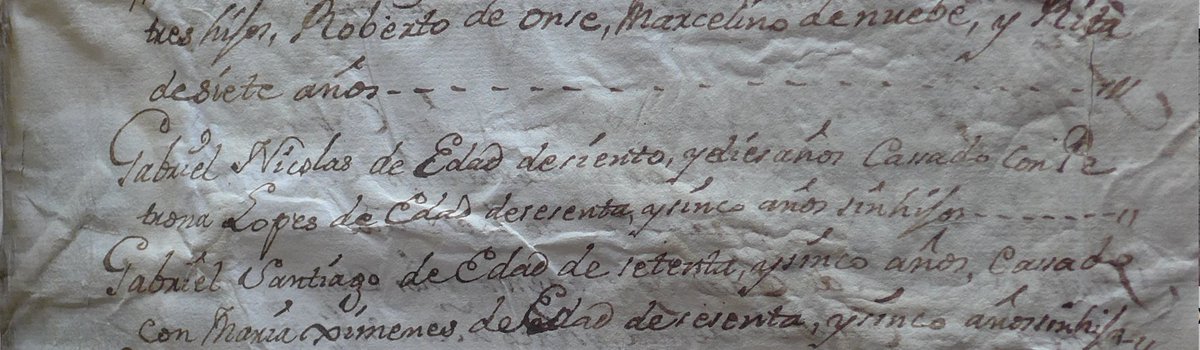 tres hijos, Roberto de onse, Marcelino de nuebe, y Rita
de siete años - - - - - - - - - - - - - - - -
Gabriel Nicolas de Edad de siento, y dies años Cassado con Pe
trona Lopes de Edad de sesenta, y sinco años sin hijos - - - - - - - - "
Gabriel Santiago de Edad de setenta, y sinco años, Cassado
con Maria Ximenes, de Edad de sesenta, y sinco años sin hijos